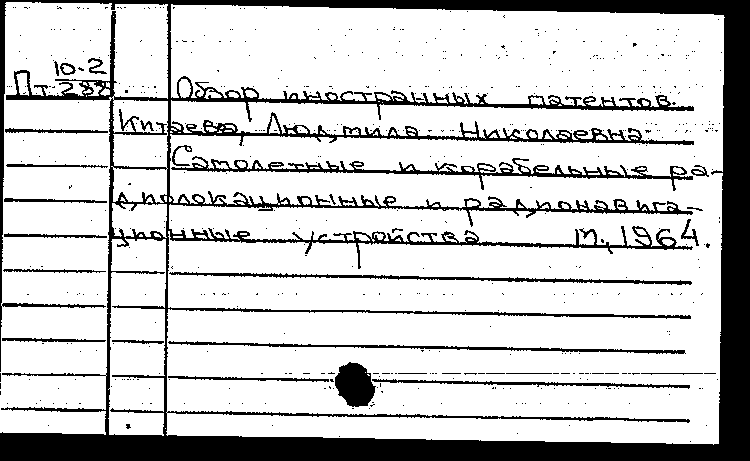 10-2
Пт 288. Обзор иностранных патентов.
Китаева, Людмила Николаевна.
Самолетные и корабельные ра-
диолокационные и радионавига-
ционные устройства М., 1964.